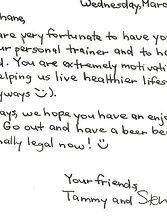 Wednesday, Marc
hane,
are very fortunate to have yo
ur personal trainer and to ha
d. You are extremely motivati
elping us live healthier lifes
yways ☺).
ays, we hope you have an enj
Go out and have a beer be
nally legal now! ☺
Your friends,
Tammy and